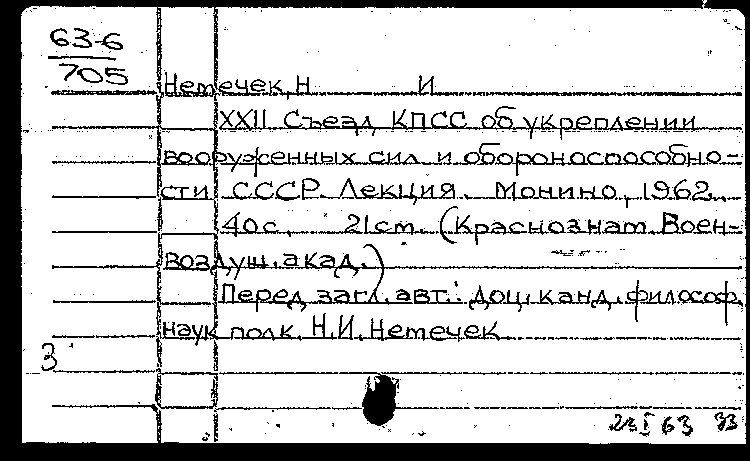 63-6
705
Немечек, Н И
XXII Съезд КПСС об укреплении
вооруженных сил и обороноспособно-
сти СССР. Лекция. Монино, 1962.
40с. 21см. (Краснознам Воен-
воздуш. акад.)
Перед загл. авт.: доц. канд. философ.
наук полк. Н.И. Немечек
3
23 I 63 33